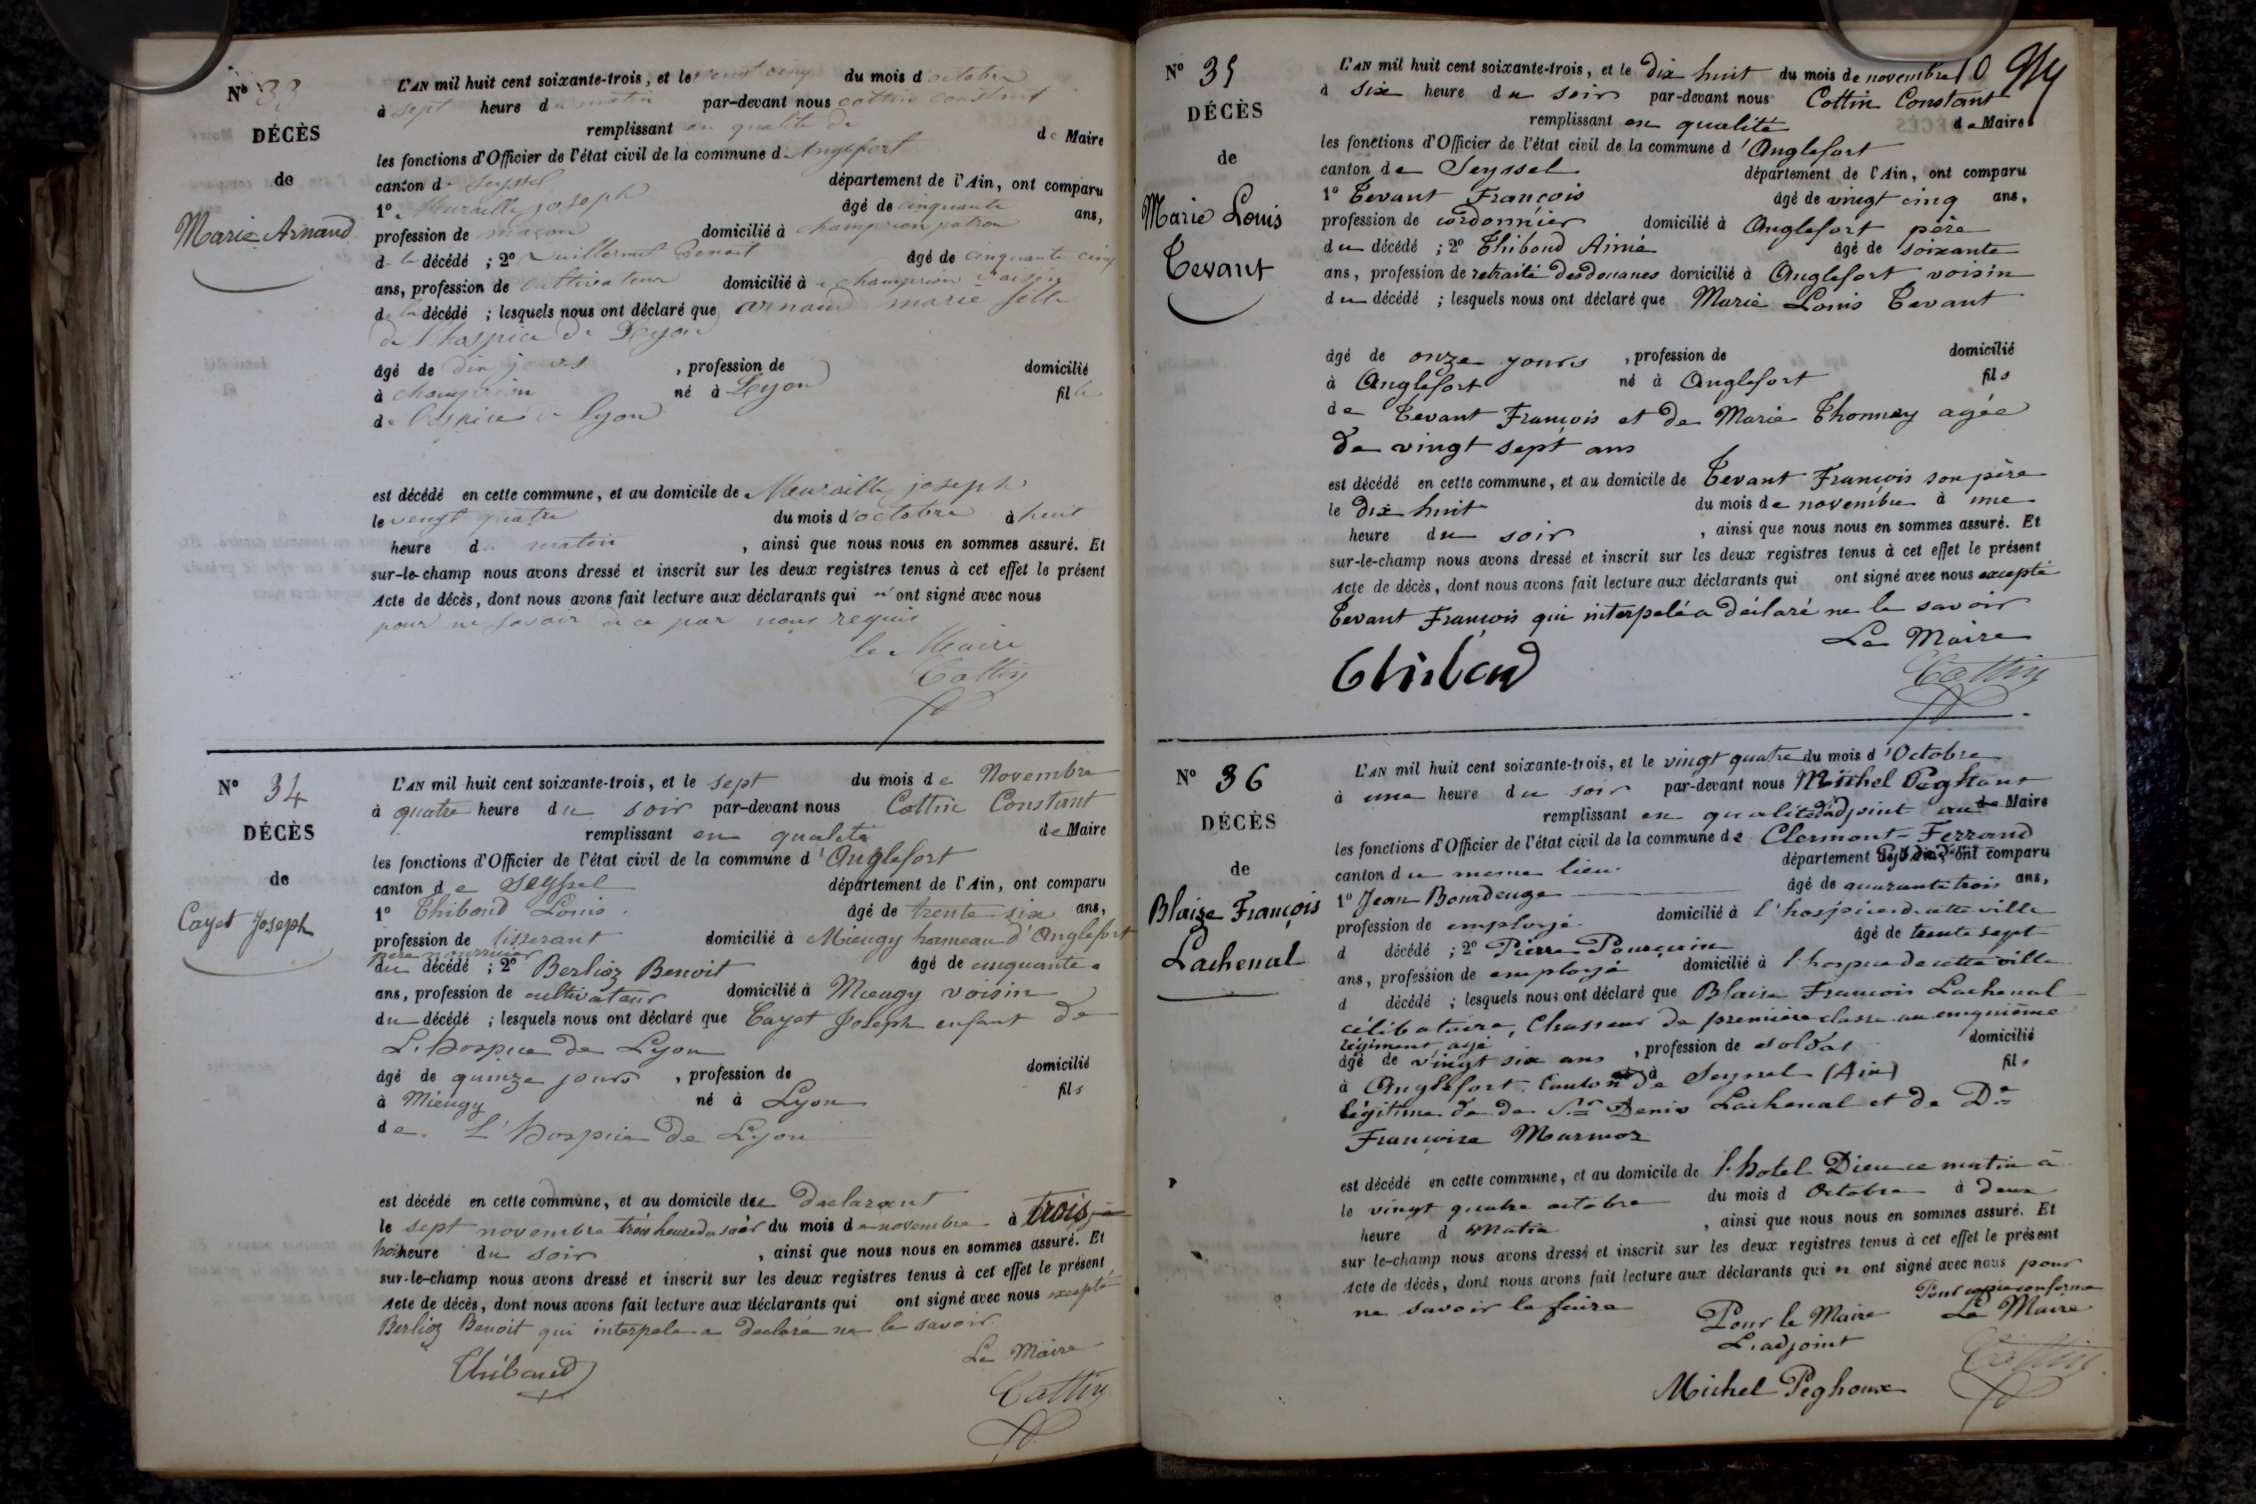 N° 33
DÉCÈS
de
Marie Arnaud
L'AN mil huit cent soixante-trois, et le vingt cinq du mois d'octobre
à sept heure du matin par-devant nous cottin constant
remplissant en qualité de de Maire
les fonctions d'Officier de l'état civil de la commune d'Anglefort
canton de Seyssel département de l'Ain, ont comparu
1° joseph âgé de cinquante ans,
profession de maçon domicilié à champrion patron
de la décédé ; 2° Vuillermet Benoit âgé de cinquante cinq
ans, profession de cultivateur domicilié à champrion voisin
de la décédé ; lesquels nous ont déclaré que arnaud marie fille
de l'hospice de Lyon
âgé de dix jours , profession de domicilié
à champrion né à Lyon fille
de l'hospice de lyon
est décédé en cette commune, et au domicile de joseph
le vengt quatre du mois d'octobre à huit
heure du matin , ainsi que nous nous en sommes assuré. Et
sur-le-champ nous avons dressé et inscrit sur les deux registres tenus à cet effet le présent
Acte de décès, dont nous avons fait lecture aux déclarants qui n'ont signé avec nous
pour ne savoir à ce par nous requis
le Maire
Cottin
N° 34
DÉCÈS
de
Cayet Joseph
L'AN mil huit cent soixante-trois, et le sept du mois de Novembre
à quatre heure du soir par-devant nous Cottin Constant
remplissant en qualité de Maire
les fonctions d'Officier de l'état civil de la commune d'Anglefort
canton de Seyssel département de l'Ain, ont comparu
1° Thiboud Louis âgé de trente-six ans,
profession de tisserant domicilié à Mieugy hameau d'Anglefort
père nourricier
du décédé ; 2° Berlioz Benoit âgé de cinquante
ans, profession de cultivateur domicilié à Mieugy voisin
du décédé ; lesquels nous ont déclaré que Cayet Joseph enfant de
L'hospice de Lyon
âgé de quinze jours , profession de domicilié
à Mieugy né à Lyon fils
de L'hospice de Lyon
est décédé en cette commune, et au domicile du declarant
le sept novembre trois heure du soir du mois de novembre à trois
heure du soir , ainsi que nous nous en sommes assuré. Et
sur-le-champ nous avons dressé et inscrit sur les deux registres tenus à cet effet le présent
Acte de décès, dont nous avons fait lecture aux déclarants qui ont signé avec nous excepté
Berlioz Benoit qui interpelé a déclaré ne le savoir
Le Maire
Thiboud
Cottin
N° 35
DÉCÈS
de
Marie Louis
Tevant
L'AN mil huit cent soixante-trois, et le dix huit du mois de novembre
à six heure du soir par-devant nous Cottin Constant
remplissant en qualité de Maire
les fonctions d'Officier de l'état civil de la commune d'Anglefort
canton de Seyssel département de l'Ain, ont comparu
1° Tevant François âgé de vingt cinq ans,
profession de cordonnier domicilié à Anglefort père
du décédé ; 2° Thiboud Aimé âgé de soixante
ans, profession de retraité des douanes domicilié à Anglefort voisin
du décédé ; lesquels nous ont déclaré que Marie Louis Tevant
âgé de onze jours , profession de domicilié
à Anglefort né à Anglefort fils
de Tevant François et de Marie Thonney agée
de vingt sept ans
est décédé en cette commune, et au domicile de Tevant François son père
le dix huit du mois de novembre à une
heure du soir , ainsi que nous nous en sommes assuré. Et
sur-le-champ nous avons dressé et inscrit sur les deux registres tenus à cet effet le présent
Acte de décès, dont nous avons fait lecture aux déclarants qui ont signé avec nous excepté
Tevant François qui interpelé a déclaré ne le savoir
Le Maire
Thiboud
Cottin
N° 36
DÉCÈS
de
Blaise François
Lachenal
L'AN mil huit cent soixante-trois, et le vingt quatre du mois d'Octobre
à une heure du soir par-devant nous Michel Peghoux
remplissant en qualité d'adjoint au Maire
les fonctions d'Officier de l'état civil de la commune de Clermont-Ferrand
canton du meme lieu département ont comparu
1° Jean Bourdeuge âgé de quarante trois ans,
profession de employé domicilié à l'hospice de cette ville
d décédé ; 2° Pierre Pourcuin âgé de trente sept
ans, profession de employé domicilié à l'hospice de cette ville
d décédé ; lesquels nous ont déclaré que Blaise François Lachenal
célibataire, Chasseur de première classe au cinquième
régiment agé
âgé de vingt six ans , profession de soldat domicilié
à Anglefort Canton de Seyssel (Ain) fils
légitime de de Sr Denis Lachenal et de De
Françoise Marmoz
est décédé en cette commune, et au domicile de l'hotel Dieu ce matin à
le vingt quatre octobre du mois d Octobre à deux
heure d Matin , ainsi que nous nous en sommes assuré. Et
sur le-champ nous avons dressé et inscrit sur les deux registres tenus à cet effet le présent
Acte de décès, dont nous avons fait lecture aux déclarants qui n ont signé avec nous pour
ne savoir le faire
Pour copie conforme
Pour le Maire Le Maire
L'adjoint
Michel Peghoux
Cottin